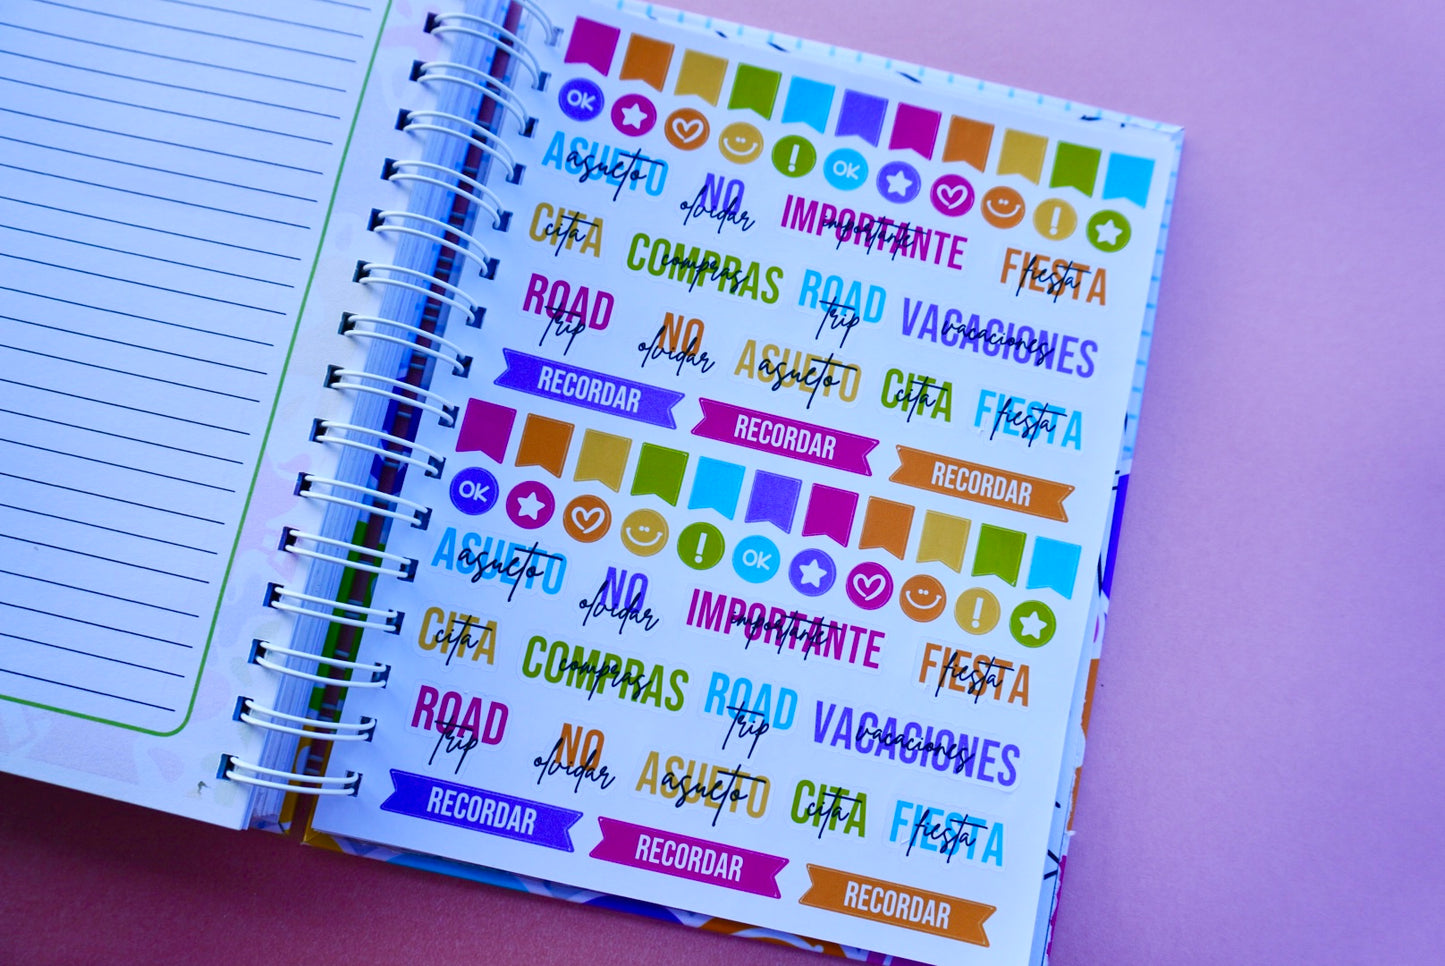 OK OK
ASUETO asueto NO olvidar IMPORTANTE importante FIESTA fiesta
CITA cita COMPRAS compras ROAD trip VACACIONES vacaciones
ROAD trip NO olvidar ASUETO asueto CITA cita FIESTA fiesta
RECORDAR RECORDAR RECORDAR
OK OK
ASUETO asueto NO olvidar IMPORTANTE importante FIESTA fiesta
CITA cita COMPRAS compras ROAD trip VACACIONES vacaciones
ROAD trip NO olvidar ASUETO asueto CITA cita FIESTA fiesta
RECORDAR RECORDAR RECORDAR